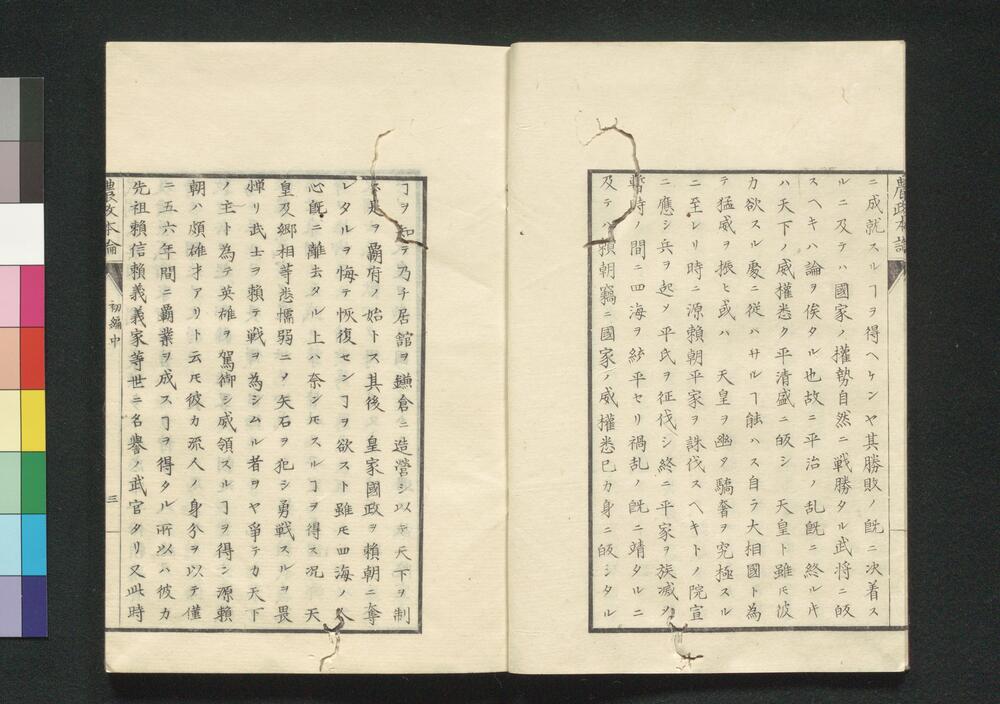 農政本論
ニ成就スルヿヲ得ヘケンヤ其勝敗ノ既ニ決着ス
ルニ及テハ國家ノ權勢自然ニ戦勝タル武将ニ皈
スヘキハ論ヲ俟タル也故ニ平治ノ乱既ニ終ルキ
ハ天下ノ威權悉ク平清盛ニ皈シ 天皇ト雖𪜈彼
カ欲スル處ニ従ハサルヿ能ハス自ラ大相國ト為
テ猛威ヲ振ヒ或ハ 天皇ヲ幽タ驕奢ヲ究極スル
ニ至レリ時ニ源頼朝平家ヲ誅伐スヘキトノ院宣
ニ應シ兵ヲ起ソ平氏ヲ征伐シ終ニ平家ヲ族滅ソ
暫時ノ間ニ四海ヲ統平セリ禍乱ノ既ニ靖タルニ
及テ 頼朝竊ニ國家ノ威權悉己カ身ニ皈シタル
ヿヲ知テ乃チ居舘ヲ鎌倉ニ造營シ以テ天下ヲ制
ス是ヲ覇府ノ始トス其後 皇家國政ヲ頼朝ニ奪
レタルヲ悔テ恢復センヿヲ欲スト雖𪜈四海ノ人
心既ニ離去タル上ハ奈ン𪜈スルヿヲ得ス况 天
皇及郷相等悉懦弱ニノ矢石ヲ犯シ勇戦スルヲ畏
憚リ武士ヲ頼テ戦ヲ為シムル者ヲヤ爭テカ天下
ノ主ト為テ英雄ヲ駕御シ威領スルヿヲ得ン源頼
朝ハ頗雄才アリト云𪜈彼カ流人ノ身分ヲ以テ僅
ニ五六年間ニ覇業ヲ成スヿヲ得タル所以ハ彼カ
先祖頼信頼義義家等世ニ名譽ノ武官タリ又此時
農政本論
初編中
三